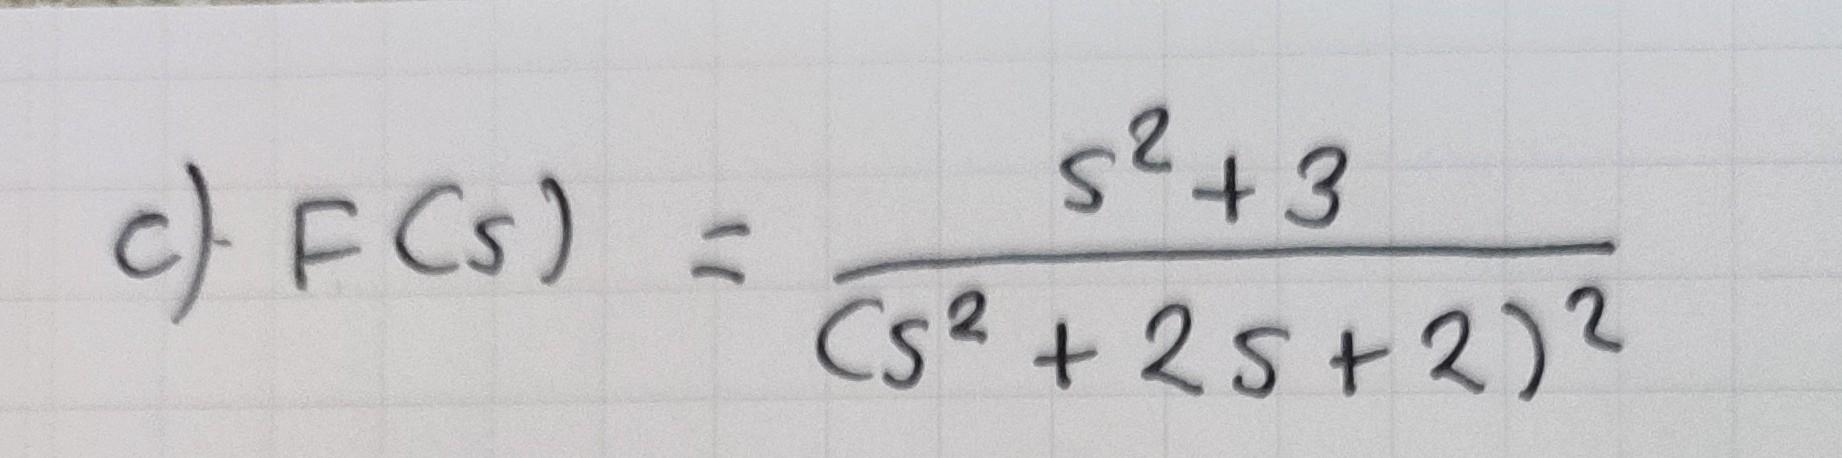 c) F(s) = \frac{s^2 + 3}{(s^2 + 2s + 2)^2}